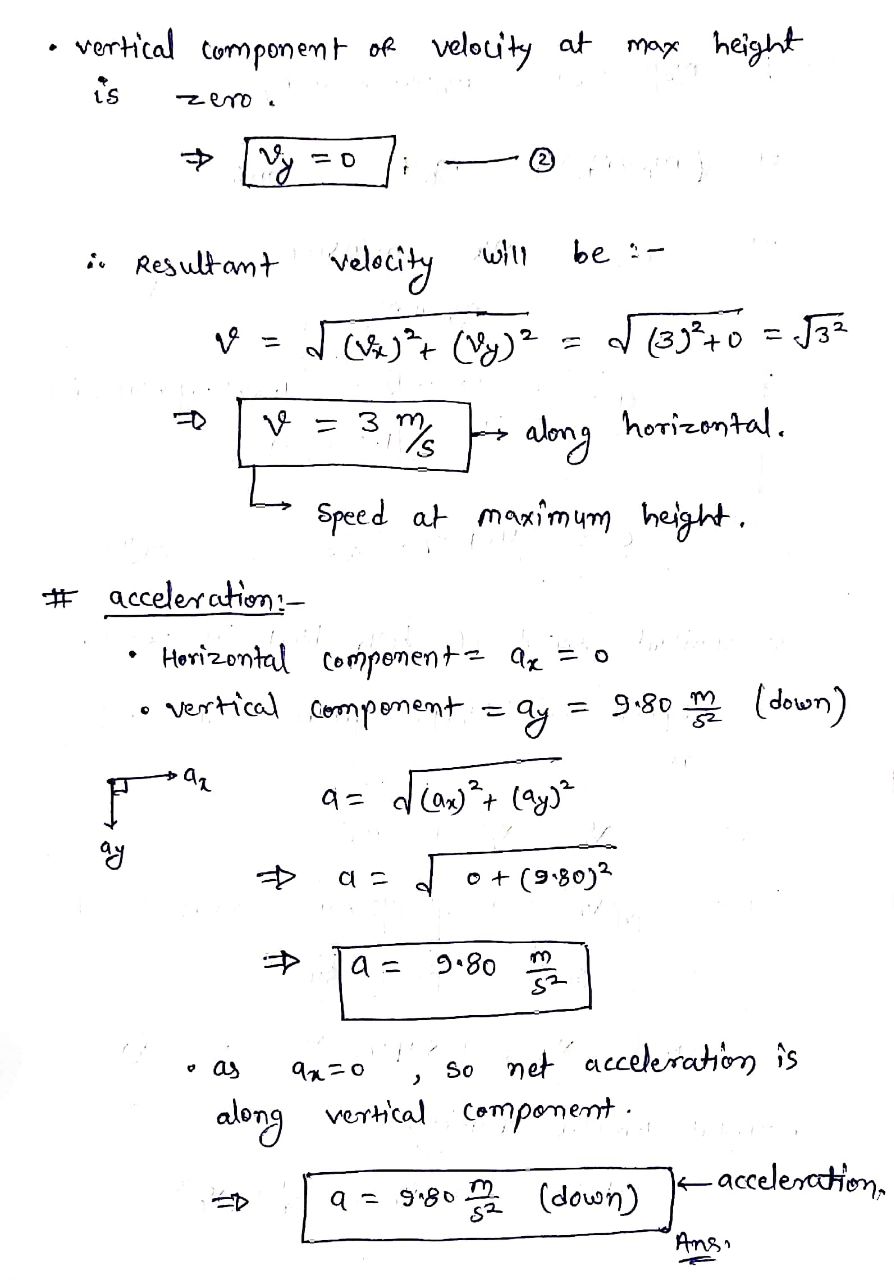 • vertical component of velocity at max height
is zero.
⇒ Vy = 0 ; —— ②
∴ Resultant velocity will be :-
v = √(Vx)² + (Vy)² = √(3)²+0 = √3²
⇒ v = 3 m/s → along horizontal.
→ Speed at maximum height.
# acceleration:-
• Horizontal component = ax = 0
• vertical component = ay = 9.80 m/s² (down)
→ ax
a = √(ax)² + (ay)²
ay
⇒ a = √0 + (9.80)²
⇒ a = 9.80 m/s²
• as ax=0 , so net acceleration is
along vertical component.
⇒ a = 9.80 m/s² (down) ← acceleration.
Ans.